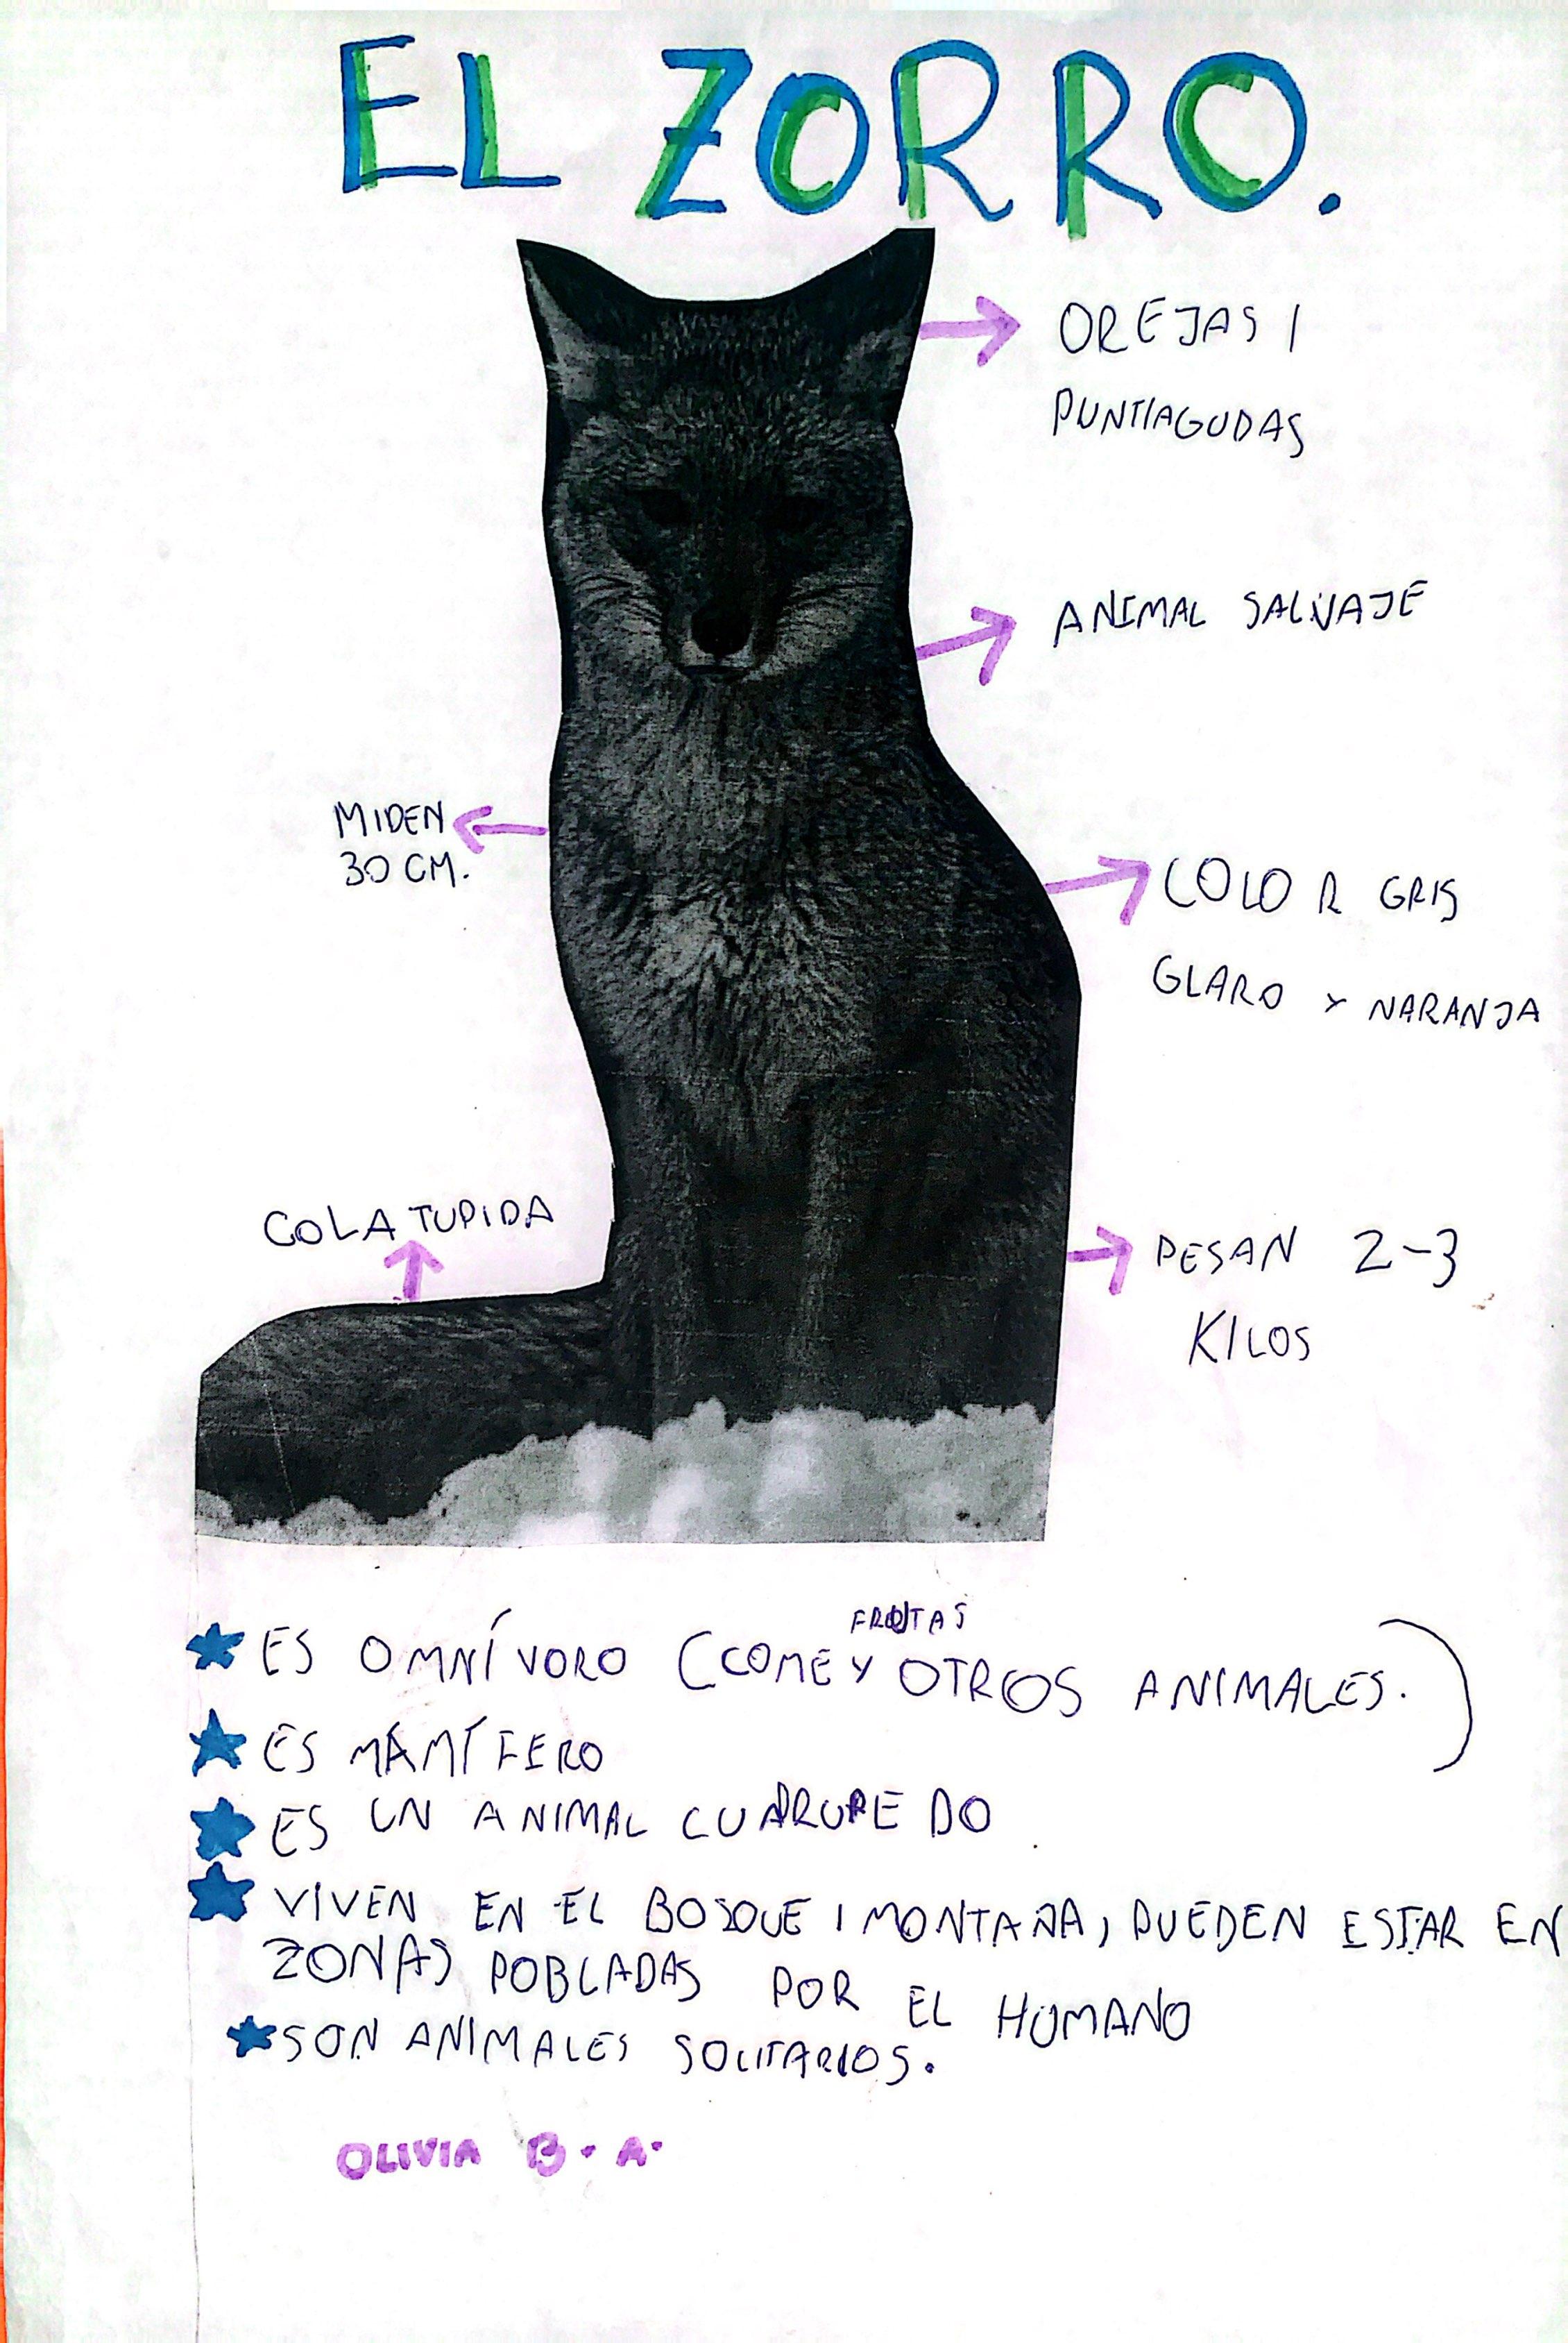 EL ZORRO.
OREJAS
PUNTIAGUDAS
ANIMAL SALVAJE
MIDEN
30 CM.
COLOR GRIS
GLARO Y NARANJA
COLA TUPIDA
PESAN 2-3
KILOS
FRUTAS
ES OMNÍVORO (COME Y OTROS ANIMALES.)
ES MAMÍFERO
ES UN ANIMAL
VIVEN EN EL BOSQUE, MONTAÑA, PUEDEN ESTAR EN
ZONAS POBLADAS POR EL HUMANO
SON ANIMALES SOLITARIOS.
OLIVIA B. A.